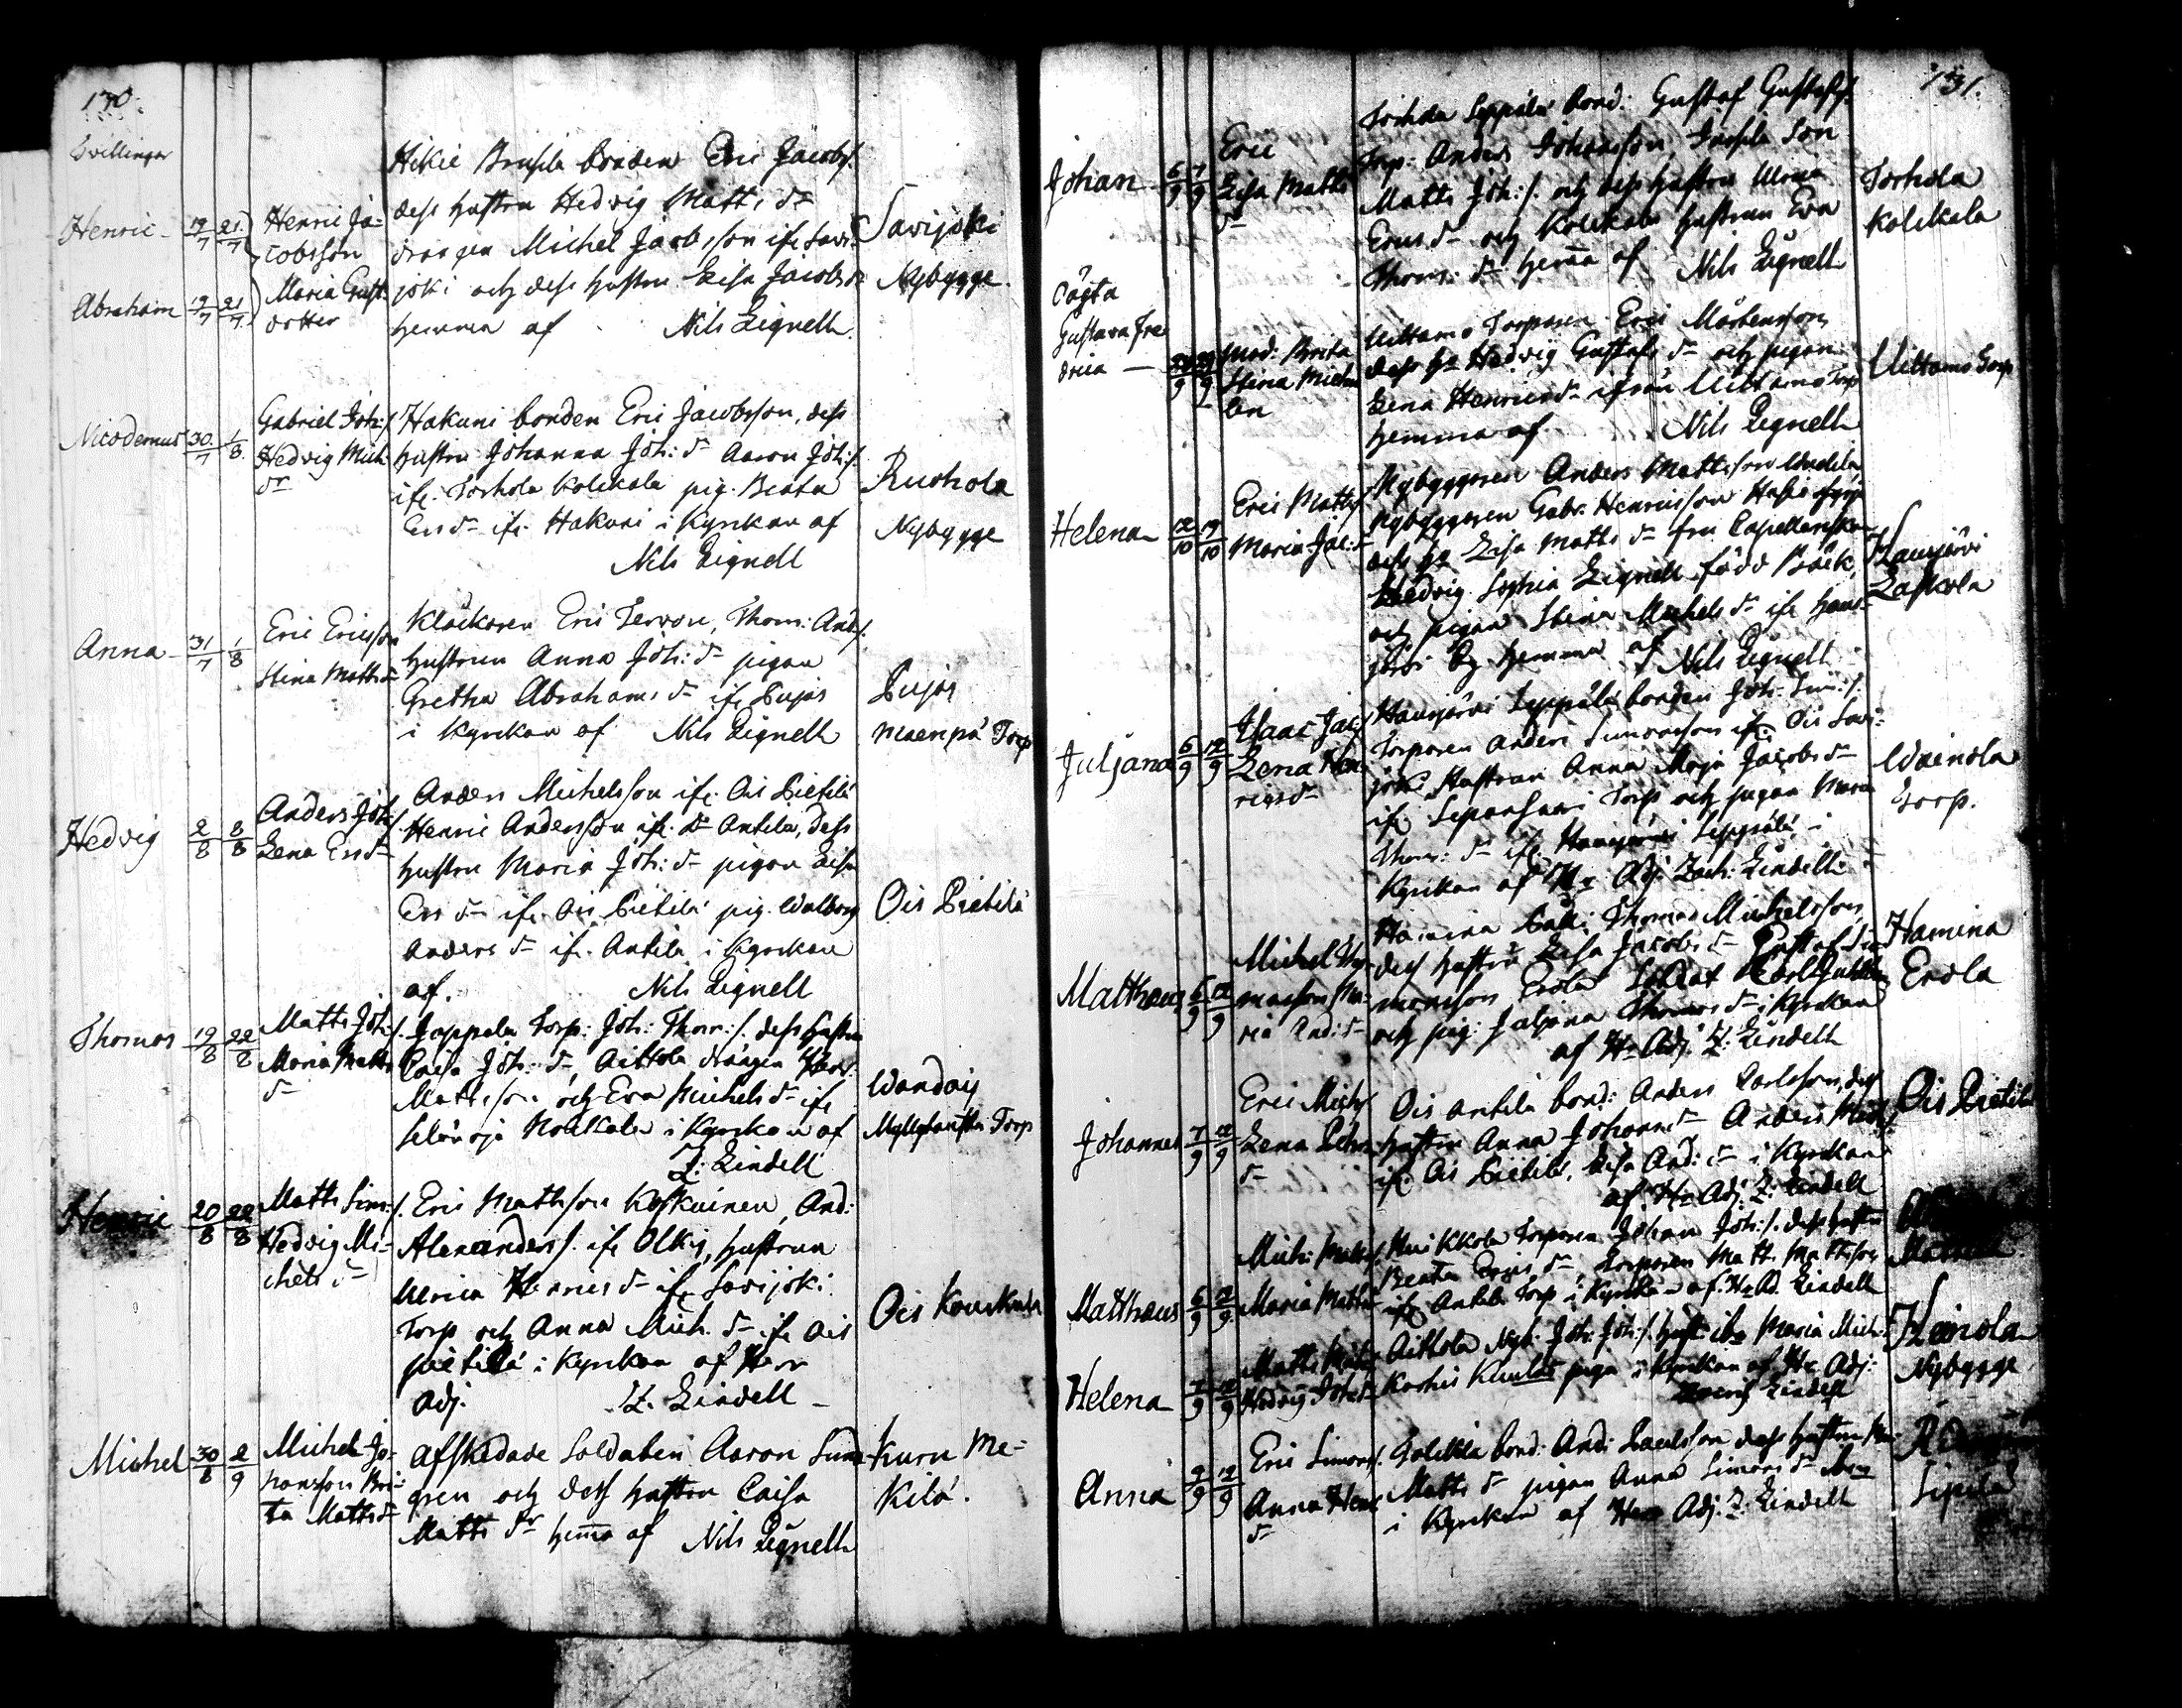 130.
Tvillingar
Henric - 19/7 21/7 Henric Ja=
cobsson
Abraham 19/7 21/7 Maria Gust.
dotter
Hikie Brusila bonden Eric Jacobs/.
dess hustru Hedvig Matts dr
drängen Michel Jacobsson ifr. Savi=
joki och dess hustru Lisa Jacobs dr
hemma af Nils Lignell.
Savijoki
Nybygge.
Nicodemus 30/7 1/8 Gabriel Joh:/.
Hedvig Mich.
dr
Hakuni bonden Eric Jacobsson, dess
hustru Johanna Joh: dr Aaron Joh:/.
ifr. Torhola Kolkkala pig. Beata
Ers dr ifr. Hakuni i Kyrkan af
Nils Lignell
Ruohola
Nybygge
Anna - 31/7 1/8 Eric Ericsson
Stina Matts dr
Klåckaren Eric Tervon, Thom: And:/.
hustrun Anna Joh: dr pigan
Gretha Abrahams dr ifr. Pujos
i Kyrkan af Nils Lignell
Pujos
Maenpä Torp
Hedvig 2/8 8/8 Anders Joh:/
Lena Ers dr
Anders Michelsson ifr. Ois Pietilä
Henric Andersson ifr. Dr Antila, dess
hustru Maria Joh: dr pigan Lisa
Ers dr ifr. Ois Pietilä pig. Walborg
Anders dr ifr. Antila i Kyrkan
af. Nils Lignell
Ois Pietilä
Thomas 19/8 22/8 Matts Joh:/.
Maria Matts
dr
Jappala Torp: Joh: Thom:/. dess hustru
Caisa Joh: dr, Aittola drängen
Mattsson och Eva Michels dr ifr.
i Kyrkan af
Z: Lindell
Torp
Henric 20/8 22/8 Matts Sim:/.
Hedvig Mi=
chels dr
Eric Mattsson Koskuinen, And:
Alexanders/. ifr. Olkis, hustrun
Ulrica Henrics dr ifr. Savijoki
Torp och Anna Mich. dr ifr. Ois
Pietilä i Kyrkan af Herr
Adj. Z. Lindell
Ois
Michel 30/8 2/9 Michel Jo=
hansson Bri=
ta Matts dr
Afskedade Soldaten Aaron Sund=
gren och dess hustru Caisa
Matts dr hemma af Nils Lignell
Kuru Me=
kilä.
131.
Johan 6/9 7/9 Eric
Lisa Matts
dr
Torhola Seppälä bond: Gustaf Gustafs/.
Torp: Anders Johansson, Jussila Son
Matts Joh:/. och dess hustru Ulrica
Erics dr och Kolkkala hustrun Eva
Thom: dr hemma af Nils Lignell
Torhola
Kolkkala
Oägta
Gustava Fre=
drica - Mod: Brita
Stina
Uittamo Torparen Eric Mårtensson,
dess hu Hedvig Gustafs dr och pigan
Lena Henrics dr ifrån Uittamo Torp
hemma af Nils Lignell
Uittamo Torp
Helena 12/10 19/10 Eric Matts/
Maria Jac: dr
Nybyggaren Anders Mattsson
Nybyggaren Gabr. Henricsson
dess hu Lisa Matts dr fru Capellanskan
Hedvig Sophia Lignell född Bäck,
och pigan Stina Michels dr ifr. Hauj=
järvi by hemma af Nils Lignell
Haujärvi
Laskola
Juljana 6/9 12/9 Isaac Jac:/
Lena Hen=
rics dr
Haujärvi Seppälä bonden Joh. Sim:/.
Torparen Anders Simonsson ifr. Ois Savi=
joki, Hustrun Anna Maja Jacobs dr
ifr. Torp och pigan Maria
Thom: dr ifr. Haujärvi Seppälä i
Kyrkan af Hr Adj. Zach: Lindell
Wainola
Torp.
Matthæus 6/9 12/9 Michel Tho=
masson Ma=
ria And: dr
Hamina bond: Thomas Michelsson,
dess hustru Lisa Jacobs dr Gustaf Si=
monsson Erola Soldat
och pig: Juljana Thomas dr i Kyrkan
af Hr Adj. Z: Lindell
Hamina
Erola
Johannes 7/9 12/9 Eric Mich/
Lena Pehrs
dr
Ois Antila bond: Anders Carlsson, dess
hustru Anna Johans dr Anders
ifr. Ois Pietilä, Lisa And: dr i Kyrkan
af Hr Adj. Z: Lindell
Ois Pietilä
Matthæus 6/9 12/9 Mich: Matts/.
Maria Matts
Torparen Johan Joh:/. dess hustru
Beata Erics dr, Torparen Matt. Mattsson
ifr. Antila Torp i Kyrkan af Hr Ad. Lindell
Helena 7/9 12/9 Matts
Hedvig Johs dr
Aittola Nyb: Joh: Joh:/. hust: Maria Mich:
piga i Kyrkan af Hr Adj:
Lindell
Heinola
Nybygge
Anna 9/9 12/9 Eric Simons/.
Anna Henr
dr
bond: And: dess hustru
Matts dr pigan Anna Simons dr
i Kyrkan af Herr Adj. Z: Lindell
Sipilä